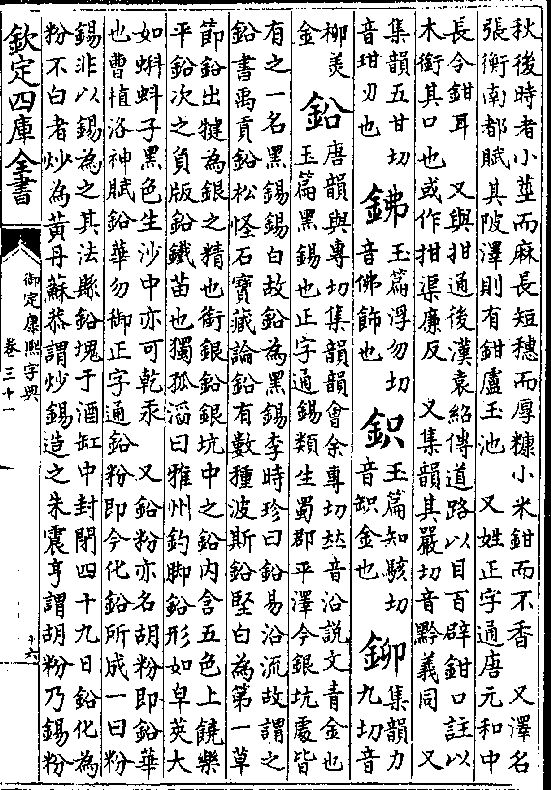 秋後時者小莖而麻長短穗而厚糠小米鉗而不香　又澤名
張衡南都賦其陂澤則有鉗盧玉池　又姓正字通唐元和中
長令鉗耳　又與拑通後漢袁紹傳道路以目百辟鉗口註以
木銜其口也或作拑渠廉反　又集韻其嚴切音黔義同　又
集韻五甘切
音玵刃也
鉘
玉篇浮勿切
音佛飾也
玉篇知駭切
金也
鉚
集韻力
九切音
柳美
金
鉛
唐韻與專切集韻韻會余專切𠀤音沿說文青金也
玉篇黑錫也正字通錫類生蜀郡平澤今銀坑處皆
有之一名黑錫錫白故鉛為黑錫李時珍曰鉛易沿流故謂之
鉛書禹貢鉛松怪石寶藏論鉛有數種波斯鉛堅白為第一草
節鉛出犍為銀之精也銜銀鉛銀坑中之鉛內含五色上饒樂
平鉛次之負版鉛鐵苗也獨孤滔曰雅州釣脚鉛形如皁莢大
如蝌蚪子黑色生沙中亦可乾汞　又鉛粉亦名胡粉即鉛華
也曹植洛神賦鉛華勿御正字通鉛粉即今化鉛所成一曰粉
錫非以錫為之其法縣鉛塊于酒缸中封閉四十九日鉛化為
粉不白者炒為黃丹蘇恭謂炒錫造之朱震亨謂胡粉乃錫粉
欽定四庫全書
御定康熙字典
卷三十一
十六